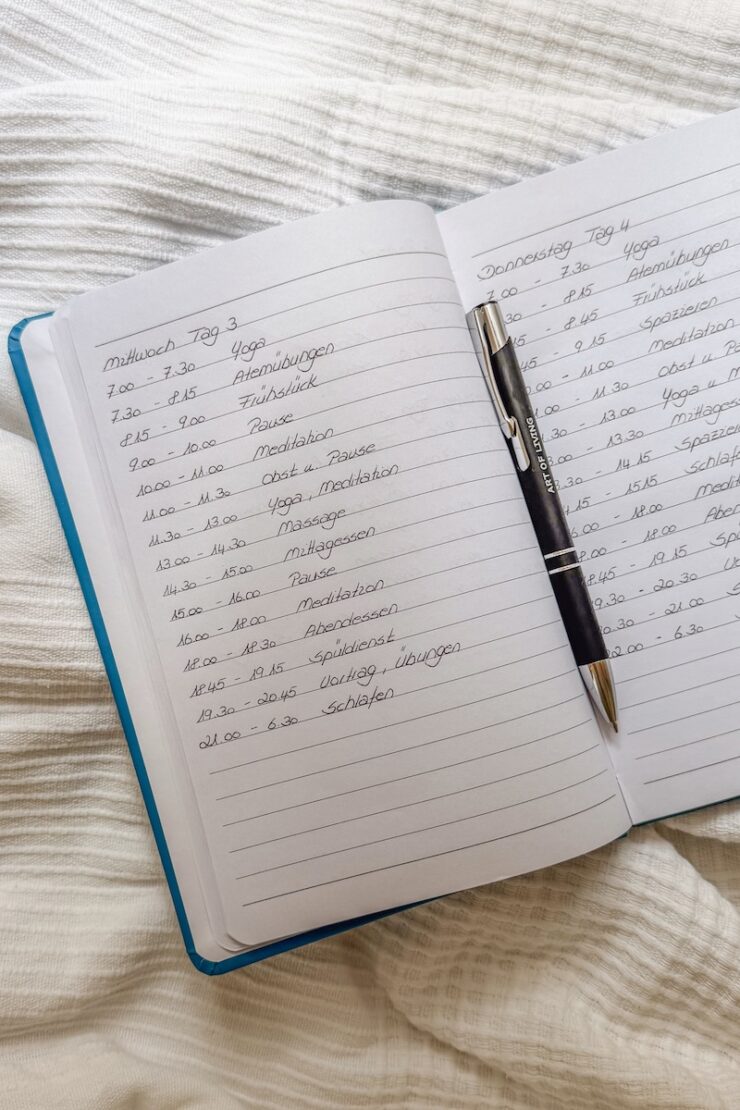 Mittwoch Tag 3
7.00 - 7.30 Yoga
7.30 - 8.15 Atemübungen
8.15 - 9.00 Frühstück
9.00 - 10.00 Pause
10.00 - 11.00 Meditation
11.00 - 11.30 Obst u. Pause
11.30 - 13.00 Yoga, Meditation
13.00 - 14.30 Massage
14.30 - 15.00 Mittagessen
15.00 - 16.00 Pause
16.00 - 18.00 Meditation
18.00 - 18.30 Abendessen
18.45 - 19.15 Spüldienst
19.30 - 20.45 Vortrag, Übungen
21.00 - 6.30 Schlafen
ART OF LIVING
Donnerstag Tag 4
7.00 - 7.30 Yoga
30 - 8.15 Atemübungen
15 - 8.45 Frühstück
45 - 9.15 Spazzieren
00 - 11.00 Meditation
00 - 11.30 Obst u. Pa
30 - 13.00 Yoga u M
00 - 13.30 Mittagess
30 - 14.15 Spazzie
15 - 15.15 Schlaf
00 - 18.00 Medit
00 - 18.00 Aben
8.45 - 19.15 Spü
9.30 - 20.30
0.30 - 21.00 S
2.00 - 6.30